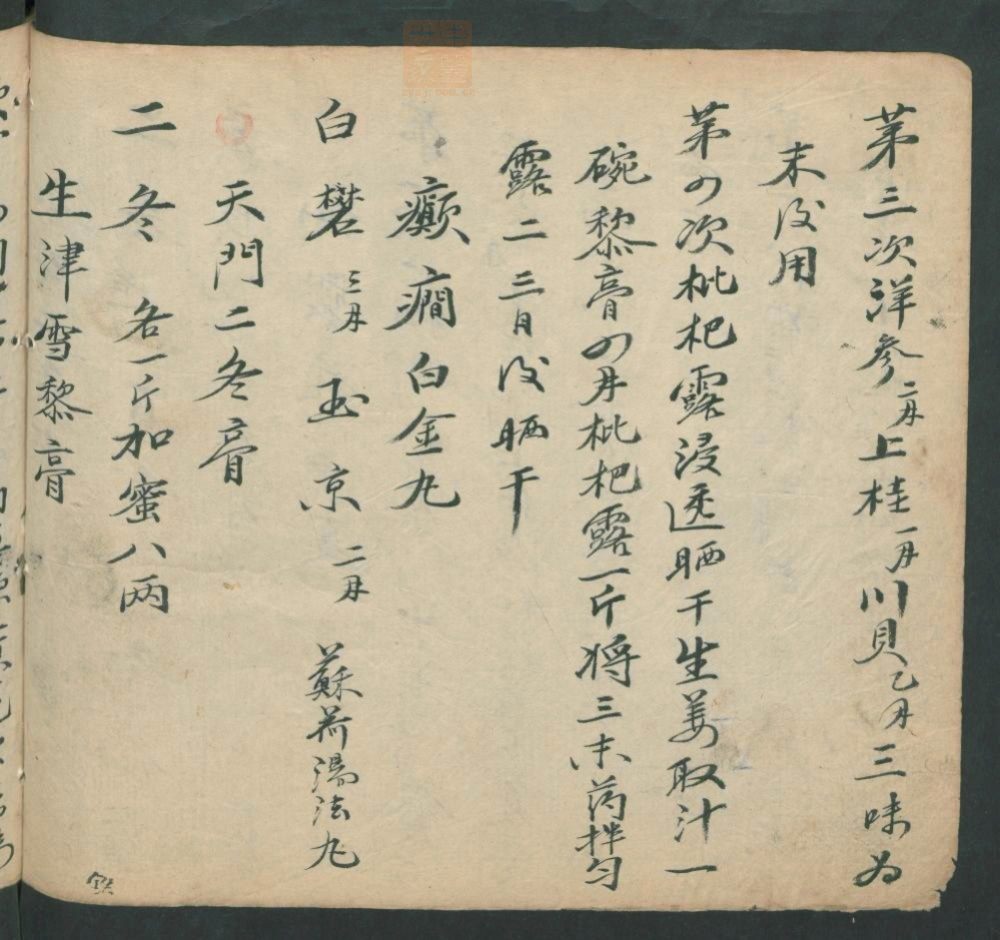 第三次洋參二月上桂一月川貝乙月三味为
末後用
第四次枇杷露浸透晒干生姜取汁一
碗黎膏四月枇杷露一斤將三末药拌匀
露二三日後晒干
癲癎白金丸
白礬三月 玉京二月 蘇荷湯法丸
天門二冬膏
二冬 各一斤加蜜八两
生津雪黎膏